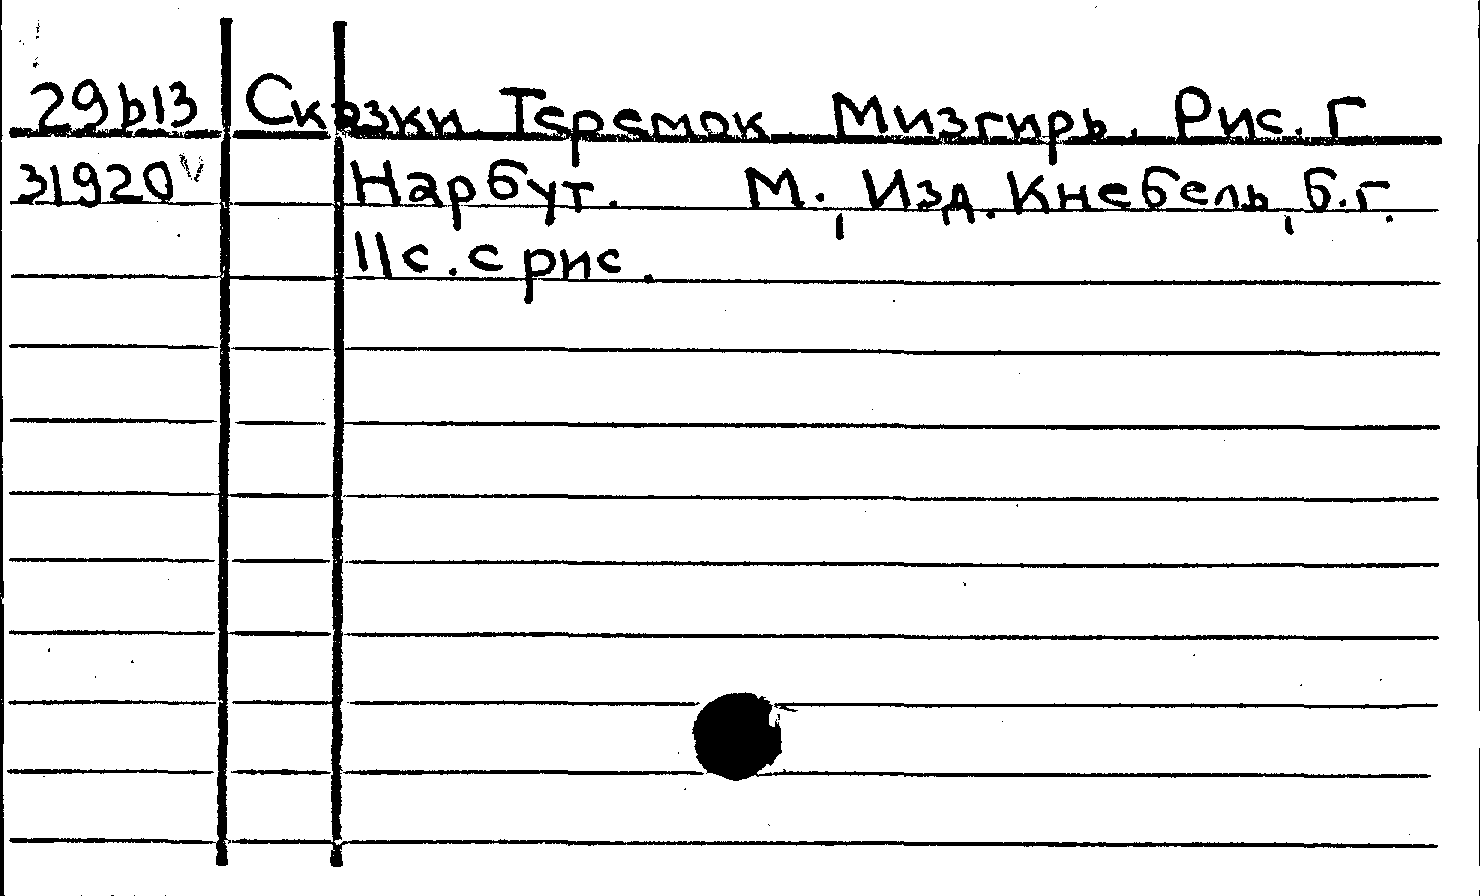 29b13 Сказки. Теремок. Мизгирь. Рис. Г
31920 V Нарбут. М., Изд. Кнебель, б.г.
11с. с рис.